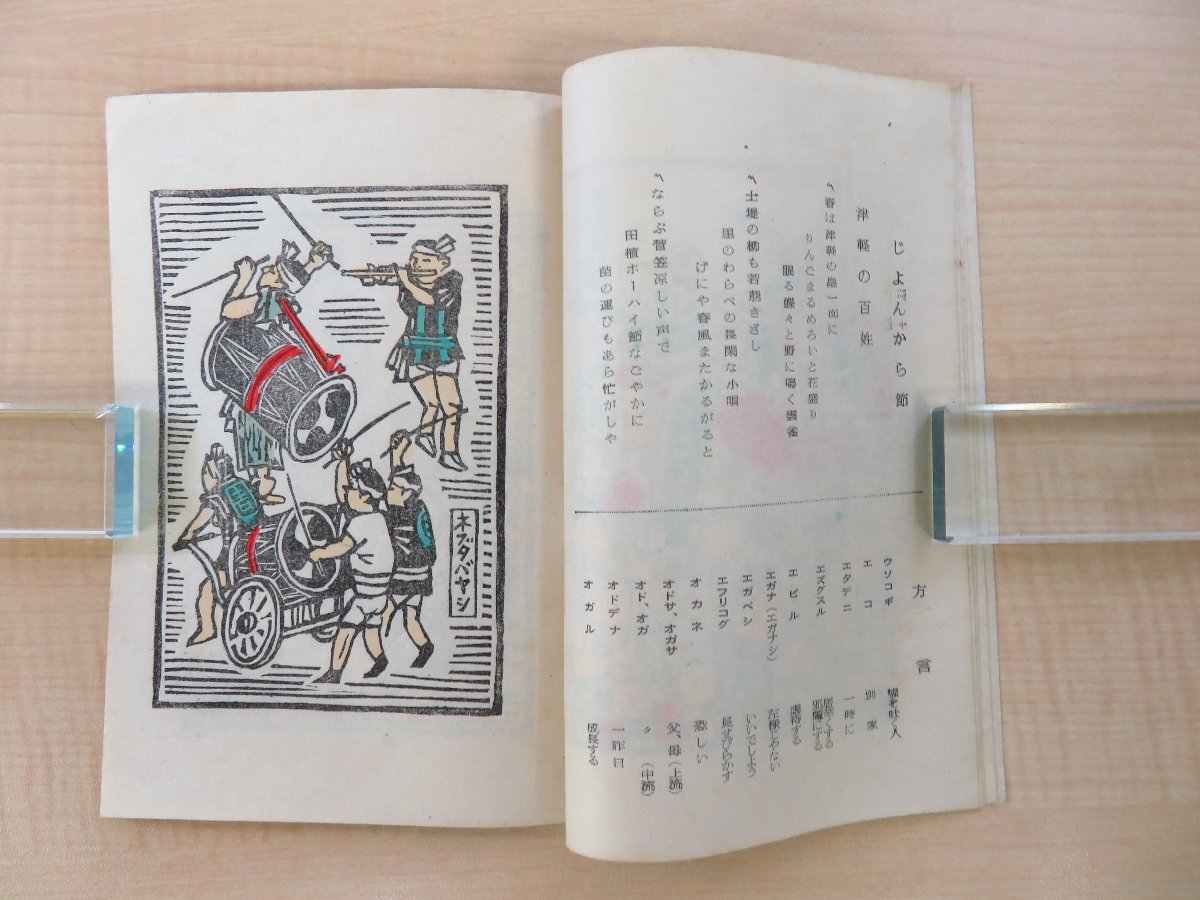 じよんから節
津軽の百姓
〽春は津軽の畠一面に
りんごまるめろいと花盛り
眠る蝶々と野に鳴く雲雀
〽土堤の柳も若萠きざし
里のわらべの長閑な小唄
げにや春風またかるがると
〽ならぶ菅笠凉しい声で
田植ホーハイ節なごやかに
苗の運びもあら忙がしや
方言
ウソコギ 嘘を吐く人
エコ 別家
エタデニ 一時に
エズグスル 居早くする 邪魔にする
エビル 虐待する
エガナ（エガナシ） 左様じやない
エガベシ いいでしよう
エフリコグ 見せびらかす
オカネ 恐しい
オドサ、オガサ 父、母（上流）
オド、オガ 〃（中流）
オドデナ 一昨日
オガル 成長する
ネブタバヤシ